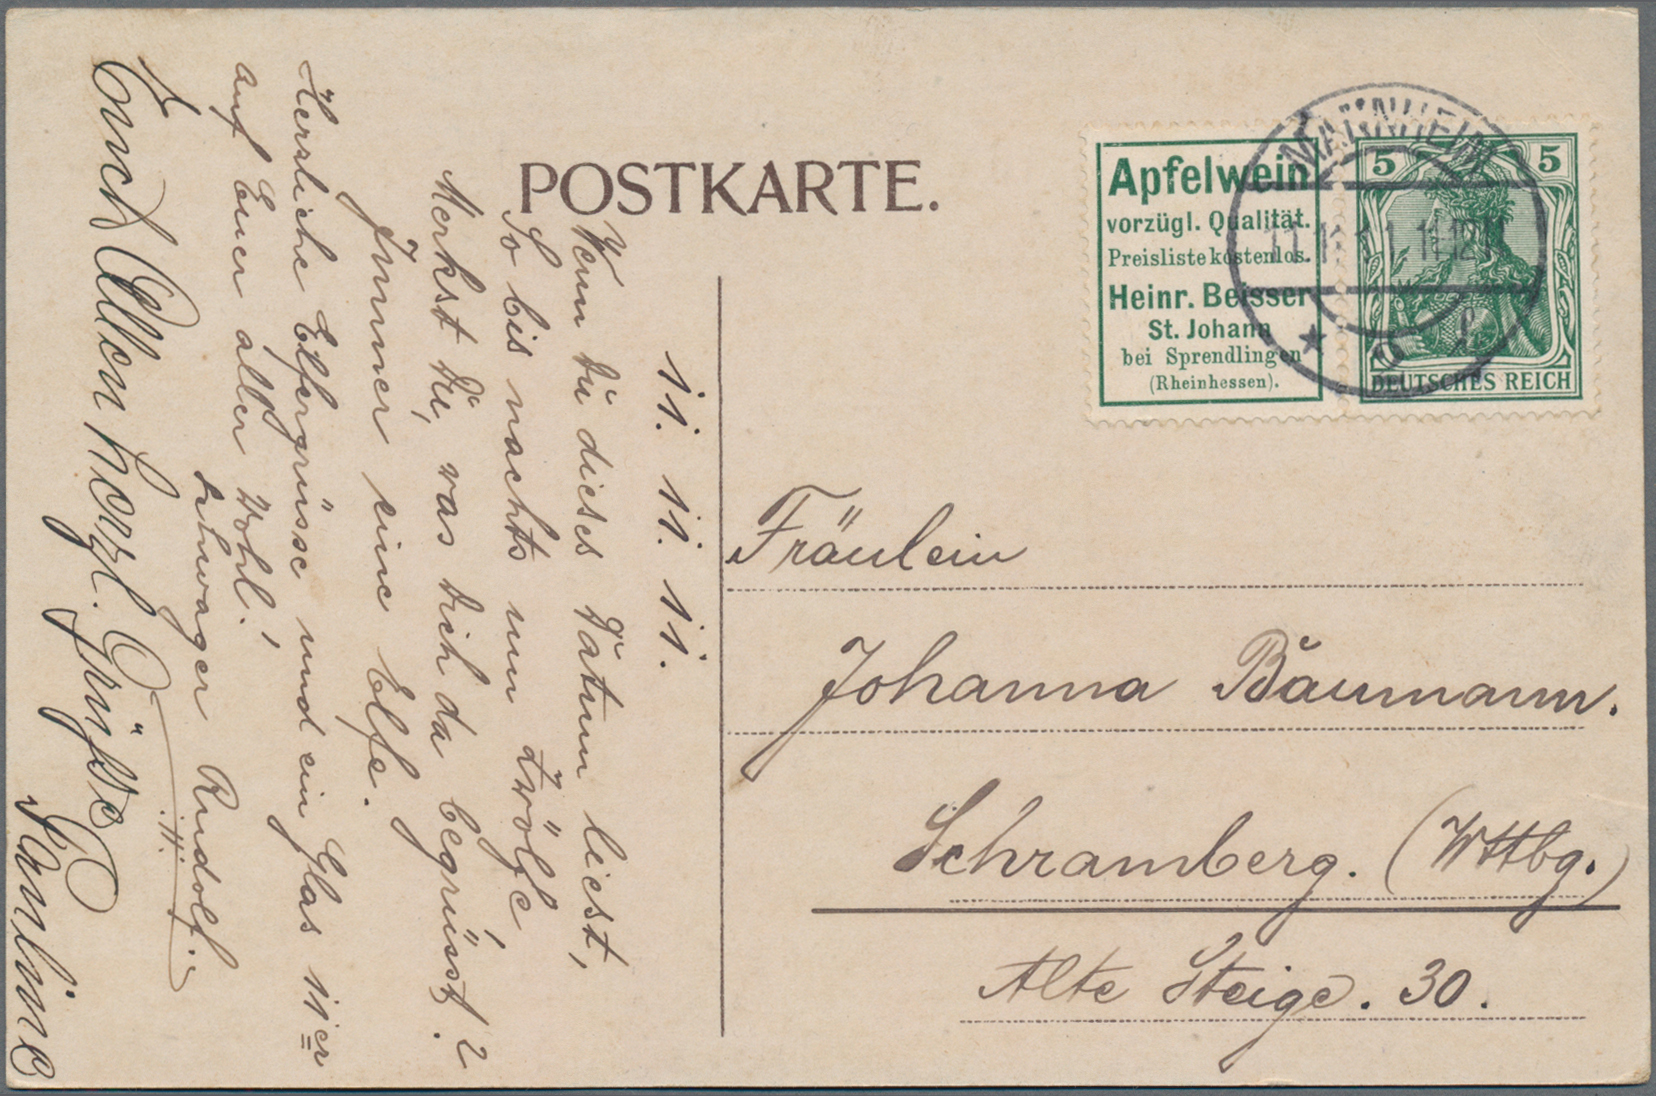 POSTKARTE.
Apfelwein
vorzügl. Qualität.
Preisliste kostenlos.
Heinr. Beisser
St. Johann
bei Sprendlingen
(Rheinhessen).
MANNHEIM
5 5
DEUTSCHES REICH
11. 11. 11.
Wenn du dieses Datum liest,
So bis nachts um Zwölfe
Merkst Du, was Dich da begrüsst?
Immer eine Elfe.
Herzliche Elfergrüsse und ein Glas 11er
auf Euer aller Wohl!
Schwager Rudolf.
Euch Allen herzl. Grüße
Pauline
Fräulein
Johanna Baumann.
Schramberg. (Wttbg.)
Alte Steige. 30.